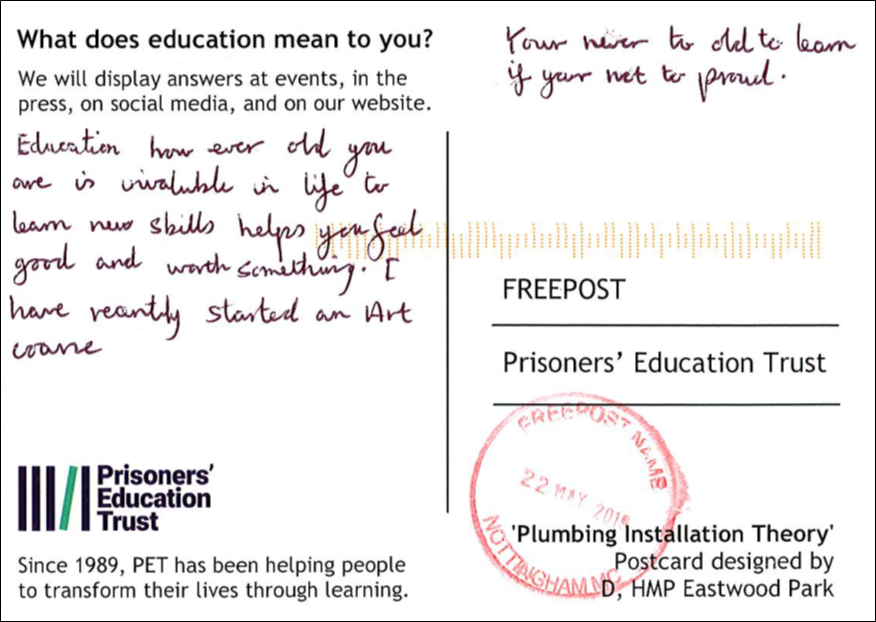 What does education mean to you?
We will display answers at events, in the
press, on social media, and on our website.
Education how ever old you
are is invaluble in life to
learn new skills helps you feel
good and worth something. I
have recantly started an Art
corse
Your never to old to learn
if your not to proud.
FREEPOST
Prisoners' Education Trust
FREEPOST NAME
22 MAY 2019
NOTTINGHAM MC
'Plumbing Installation Theory'
Postcard designed by
D, HMP Eastwood Park
Prisoners'
Education
Trust
Since 1989, PET has been helping people
to transform their lives through learning.